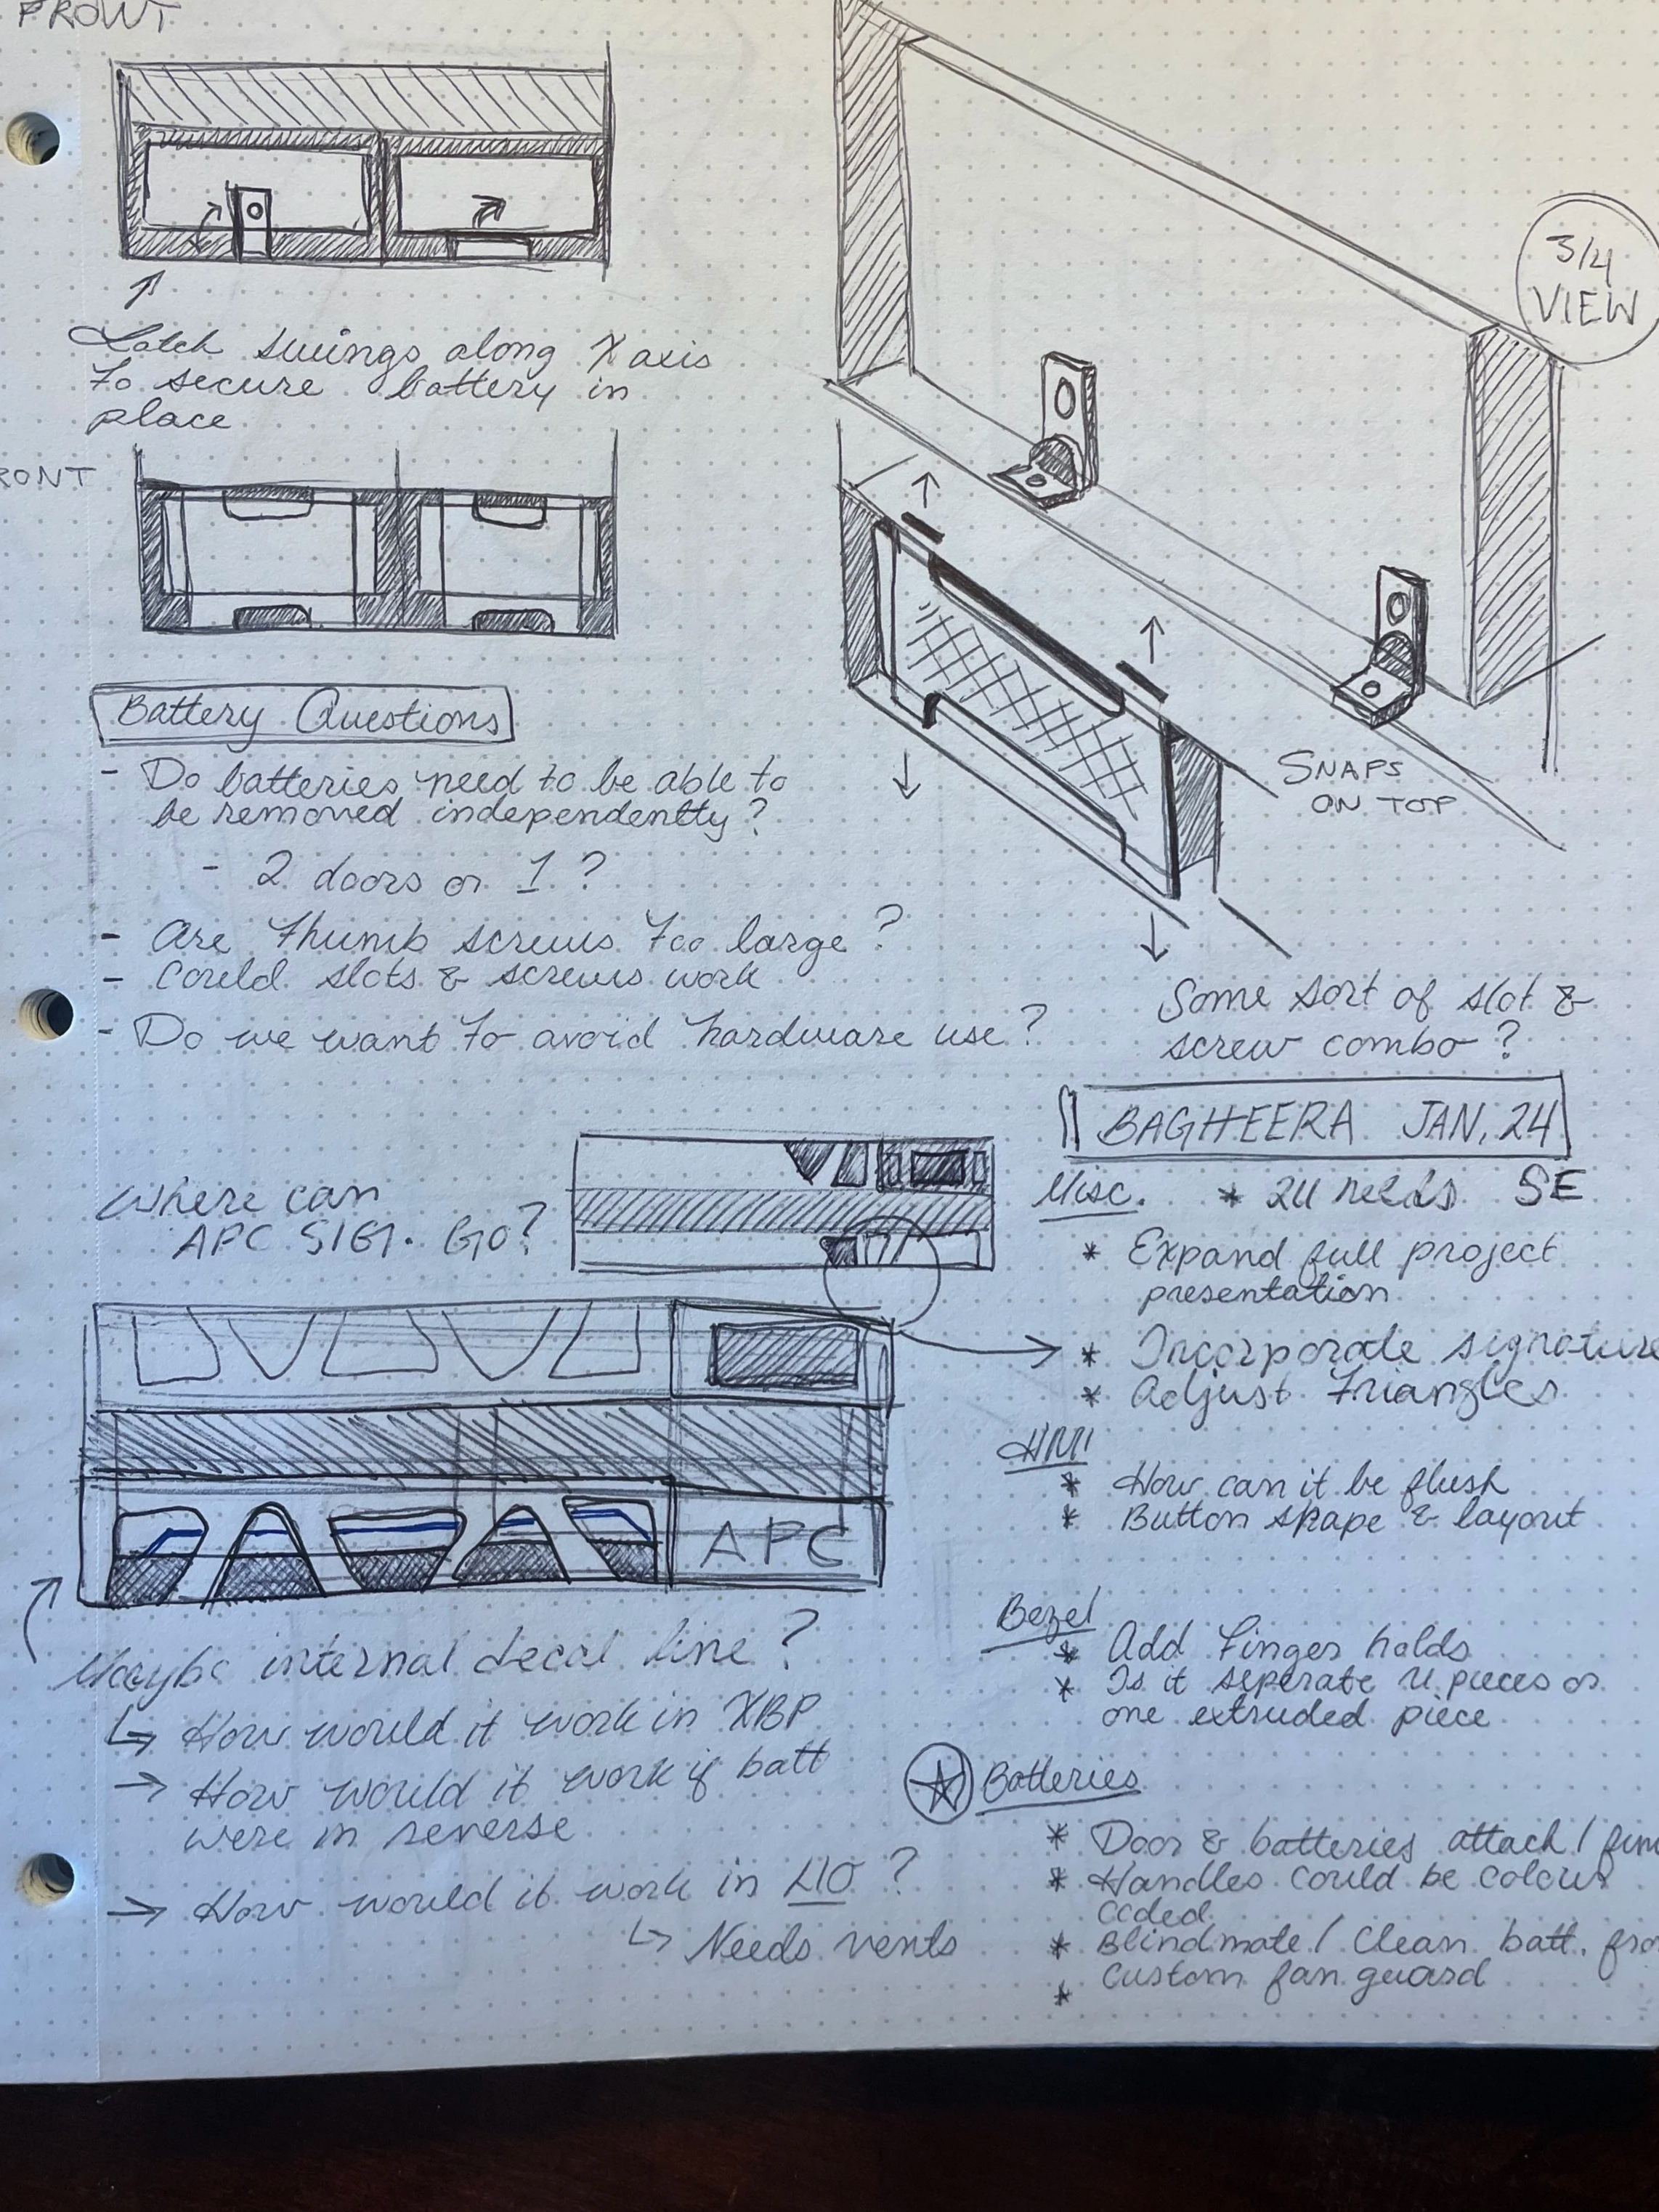 FRONT
3/4
VIEW
Latch swings along X axis
to secure battery in
place
RONT
Battery Questions
- Do batteries need to be able to
be removed independently?
- 2 doors or 1?
- Are thumb screws too large?
- Could slots & screws work
- Do we want to avoid hardware use?
SNAPS
ON TOP
Some sort of slot &
screw combo?
Where can
APC SIG. GO?
APC
Maybe internal decal line?
↳ How would it work in XBP
→ How would it work if batt
were in reverse
→ How would it work in LIO?
↳ Needs vents
BAGHEERA JAN, 24
Misc. * 2U needs SE
* Expand full project
presentation
* Incorporate signature
* Adjust triangles
HMI
* How can it be flush
* Button shape & layout
Bezel
* Add finger holds
* Is it seperate u pieces or
one extruded piece
Batteries
* Door & batteries attach /
* Handles could be colour
coded
* Blindmate / Clean batt.
custom fan guard
*